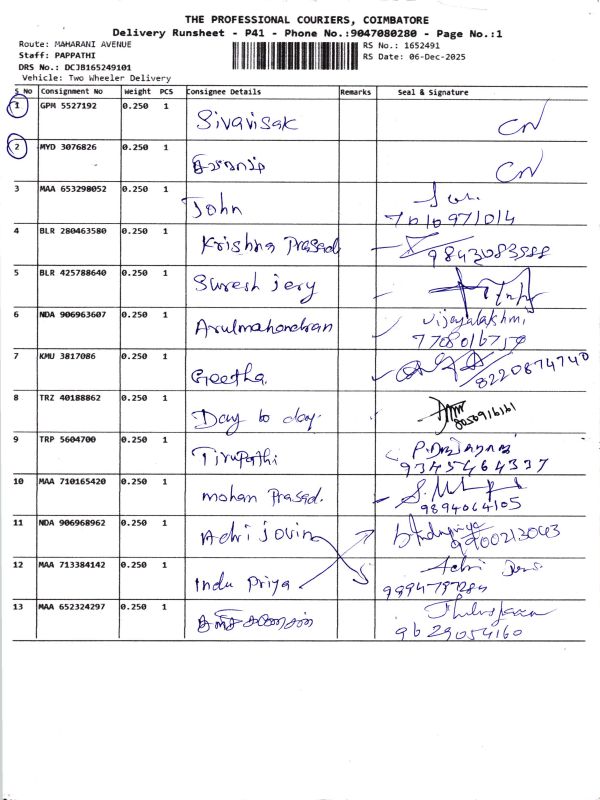 THE PROFESSIONAL COURIERS, COIMBATORE
Delivery Runsheet - P41 - Phone No.:9047080280 - Page No.:1
Route: MAHARANI AVENUE
Staff: PAPPATHI
DRS No.: DCJB165249101
Vehicle: Two Wheeler Delivery
RS No.: 1652491
RS Date: 06-Dec-2025
S No Consignment No Weight PCS Consignee Details Remarks Seal & Signature
1 GPM 5527192 0.250 1 Sivavisak CN
2 MYD 3076826 0.250 1 CN
3 MAA 653298052 0.250 1 John
7010971014
4 BLR 280463580 0.250 1 Krishna Prasad
9843083588
5 BLR 425788640 0.250 1 Suresh jery
6 NDA 906963607 0.250 1 Arulmahendran Vijayalakhmi
7708016750
7 KMU 3817086 0.250 1 Geetha.
8220874740
8 TRZ 40188862 0.250 1 Day to day.
8050916161
9 TRP 5604700 0.250 1 Tirupathi
9345464337
10 MAA 710165420 0.250 1 mohan Prasad.
9894064105
11 NDA 906968962 0.250 1 Adhi jovin
9700213043
12 MAA 713384142 0.250 1 Indu Priya
13 MAA 652324297 0.250 1
9629054160